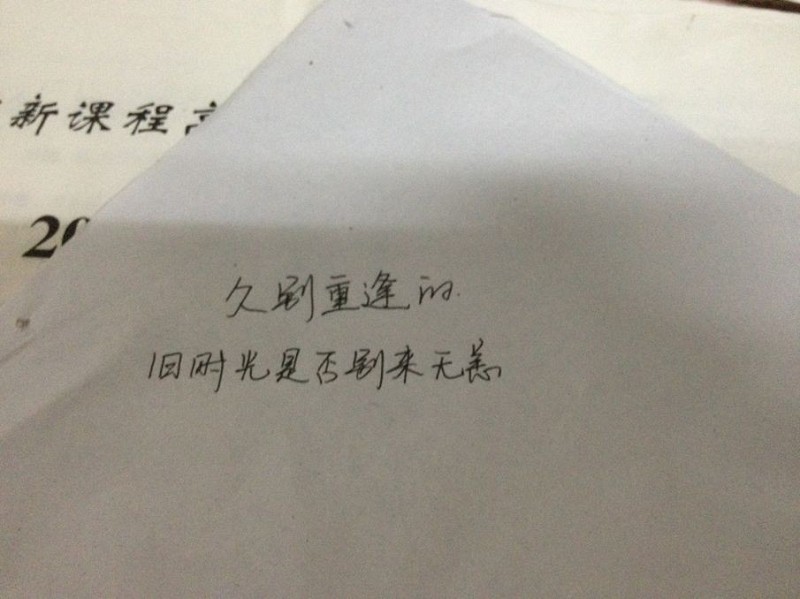 新课程高
20
久别重逢的
旧时光是否别来无恙